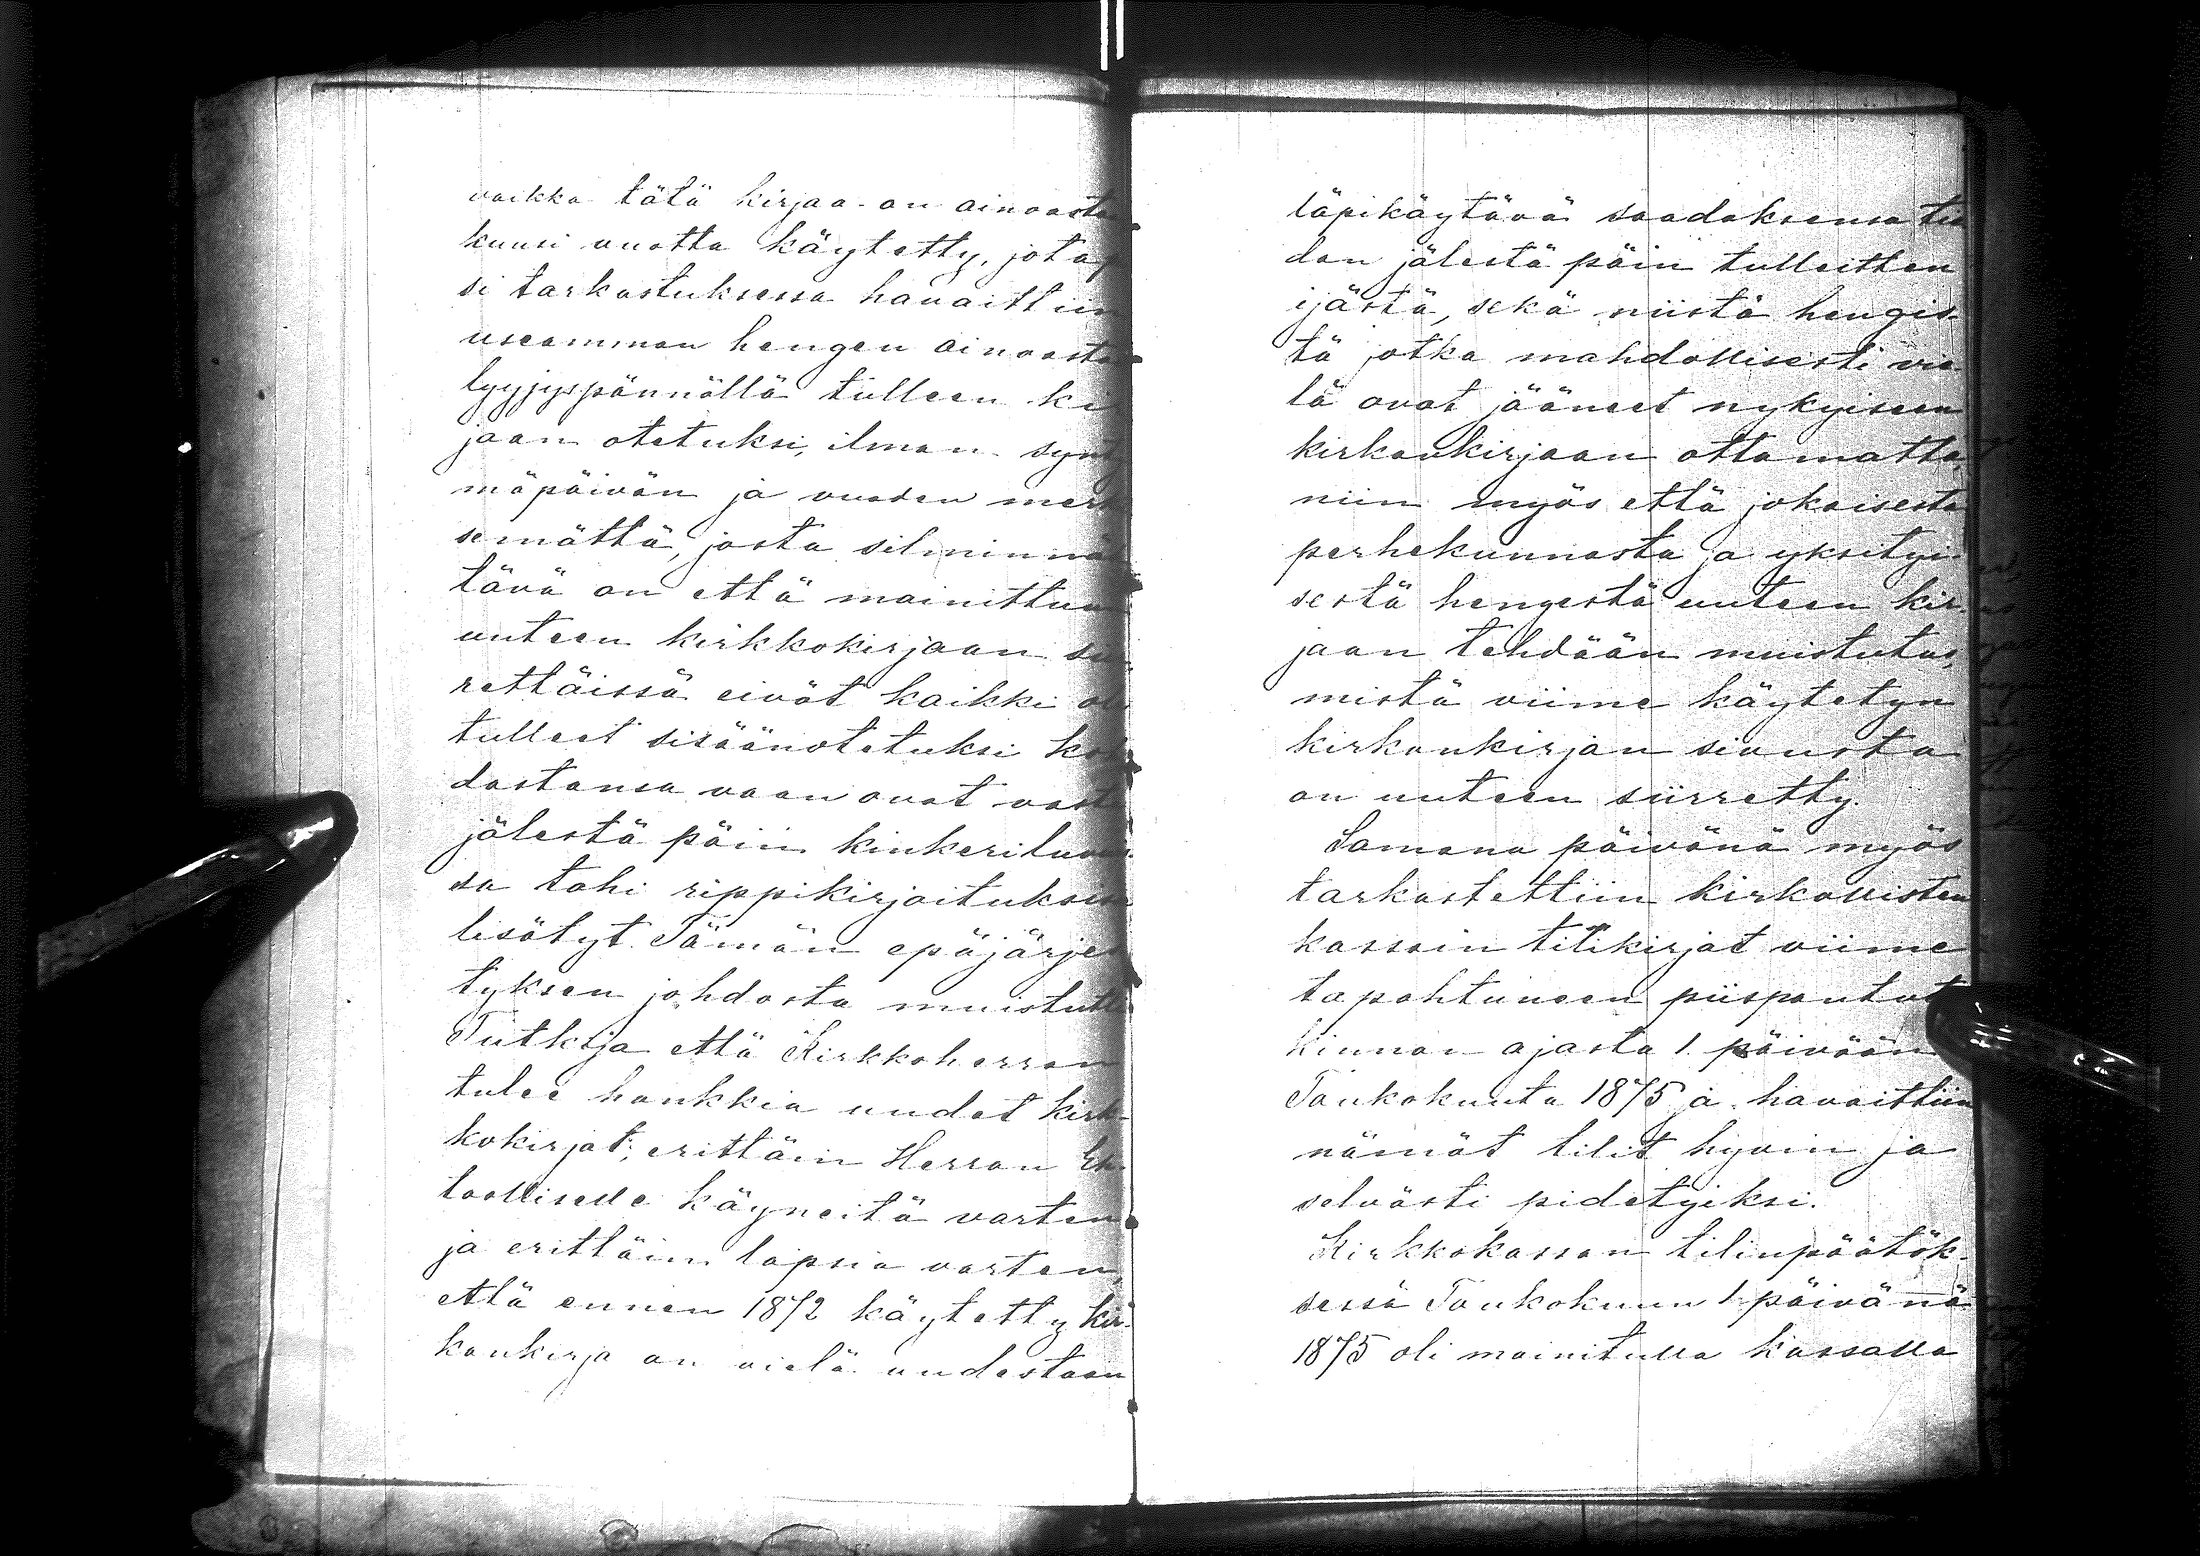 vaikka tätä kirjaa on ainoasta
kuusi vuotta käytetty, jota
si tarkastuksessa havaittiin
useamman hengen ainoasta
lyyjyspännällä tulleen ki
jaan otetuksi, ilman synt
mäpäivän ja vuoden merk
semättä, josta silminnä
tävä on että mainittuu
uuteen kirkkokirjaan sii
rettäissä eivät kaikki o
tulleet sisäänotetuksi ko
dastansa vaan ovat vast
jälestä päin kinkeriluvu
sa tahi rippikirjoituksess
lisätyt. Tämän epäjärjes
tyksen johdosta muistutt
Tutkija että Kirkkoherran
tulee hankkia uudet kirk-
kokirjat; erittäin Herran Eh-
toolliselle käyneitä varten
ja erittäin lapsia varten,
että ennen 1872 käytetty kir-
konkirja on vielä uudestaan
läpikäytävä saadaksensa tie
don jälestä päin tulleitten
ijästä, sekä niistä hengis-
tä jotka mahdollisesti vie-
lä ovat jääneet nykyiseen
kirkonkirjaan ottamatta,
niin myös että jokaisesta
perhekunnasta ja yksityi-
sestä hengestä uuteen kir-
jaan tehdään muistutus,
mistä viime käytetyn
kirkonkirjan sivusta
on uuteen siirretty.
Samana päivänä myös
tarkastettiin kirkollisten
kassain tilikirjat viime
tapahtuneen piispantut
kinnon ajasta 1 päivään
Toukokuuta 1875 ja havaittiin
nämät tilit hyvin ja
selvästi pidetyiksi.
Kirkkokassan tilinpäätök-
sessä Toukokuun 1 päivänä
1875 oli mainitulla kassalla